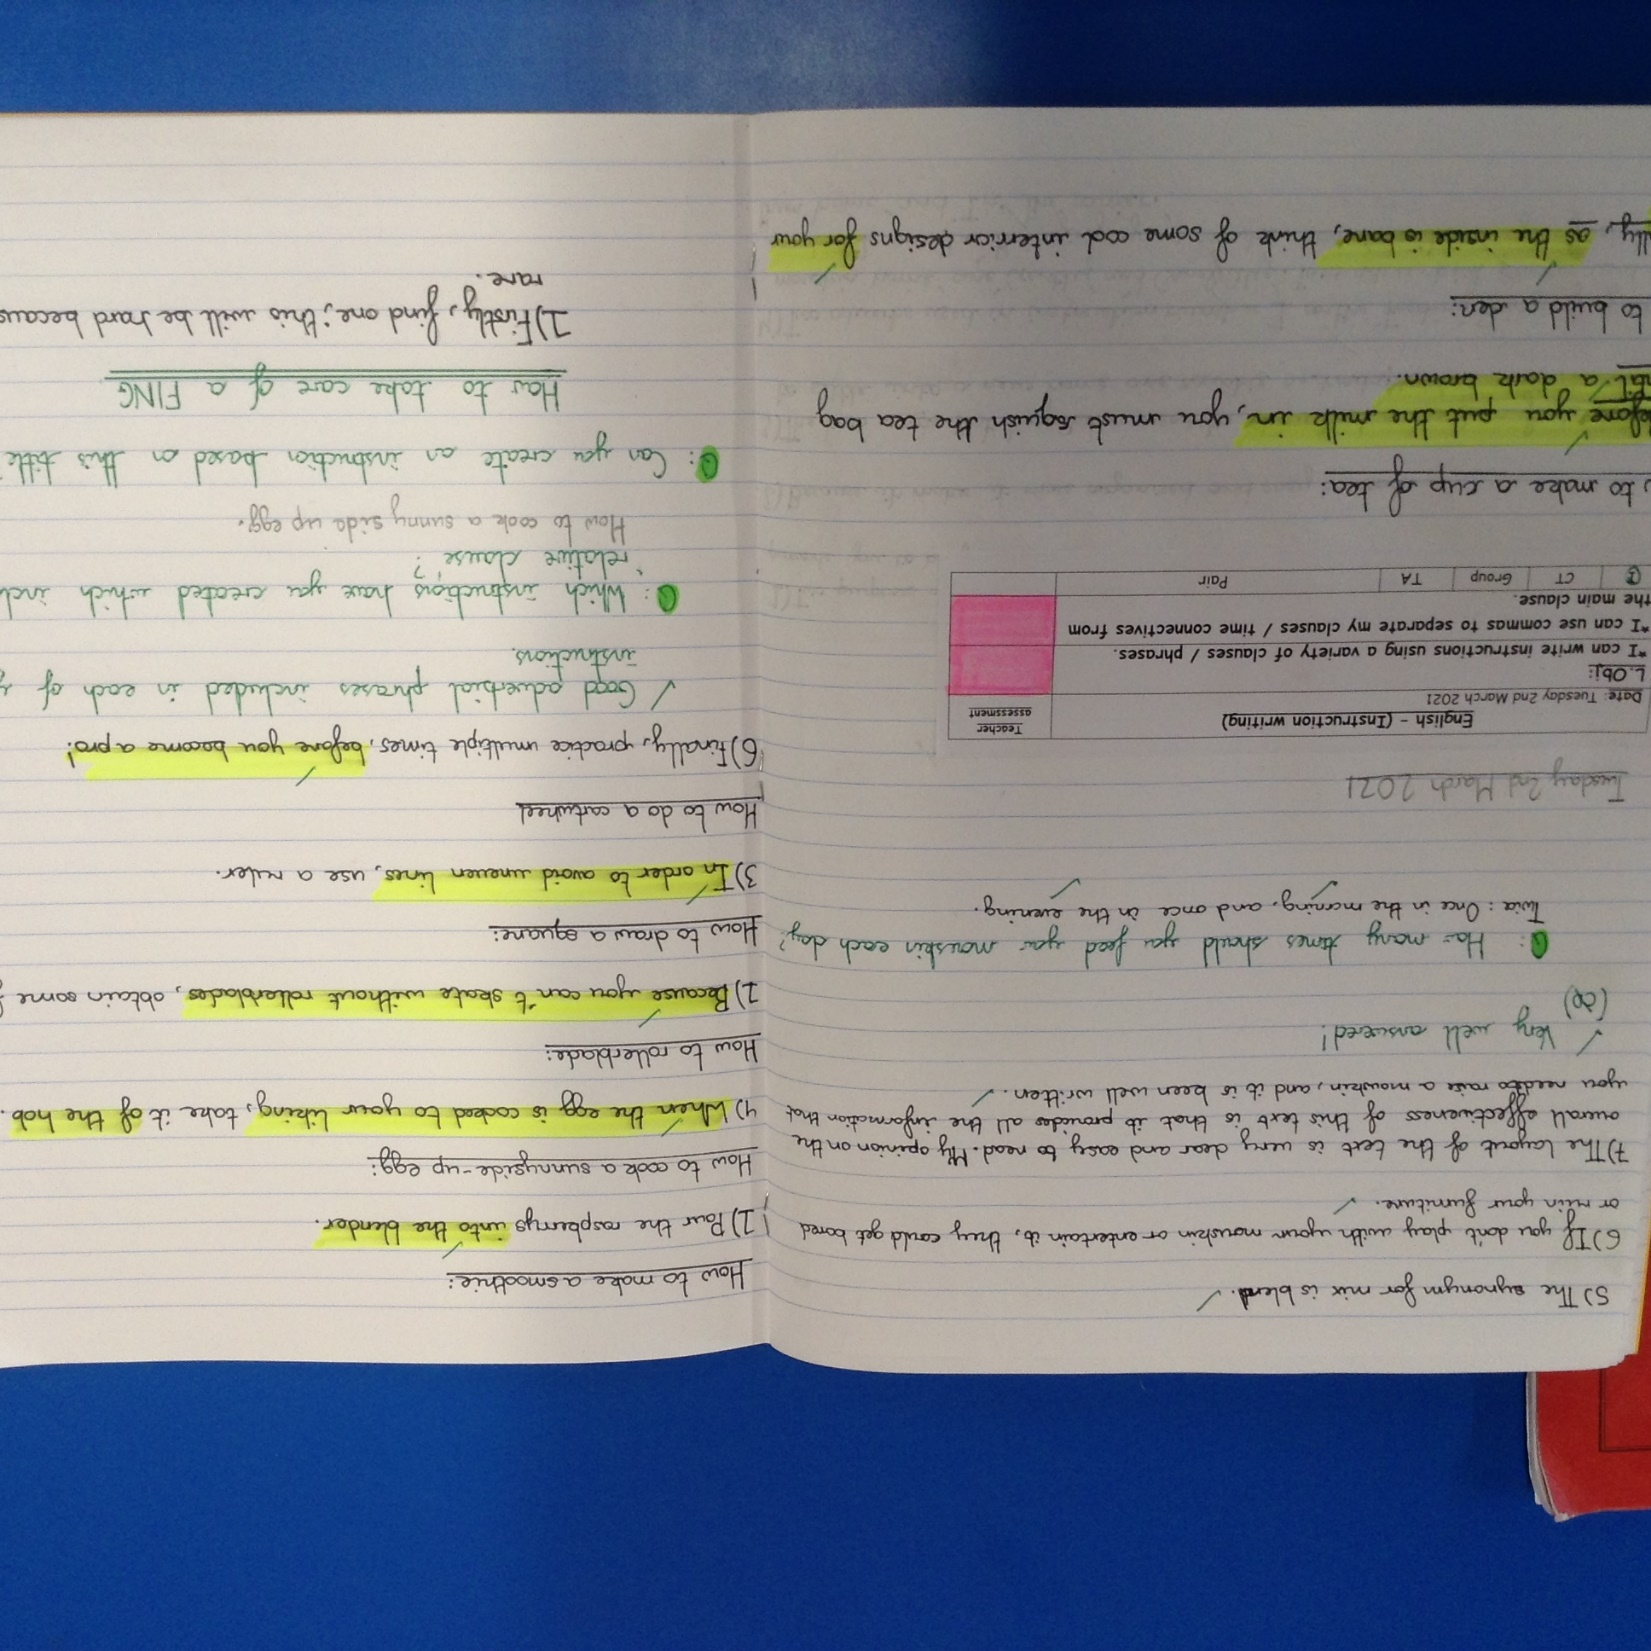 5) The synonym for mix is blend.
6) If you don't play with your mowskin or entertain it, they could get bored
or ruin your furniture.
7) The layout of the text is very clear and easy to read. My opinion on the
overall effectiveness of this text is that it provides all the information that
you need to raise a mowskin, and it is been well written.
✓ Very well answered!
Q: How many times should you feed your mowskin each day?
Twice: Once in the morning, and once in the evening.
Tuesday 2nd March 2021
English - (Instruction writing)
Teacher
assessment
Date: Tuesday 2nd March 2021
L.Obj:
*I can write instructions using a variety of clauses / phrases.
*I can use commas to separate my clauses / time connectives from
the main clause.
CT Group TA Pair
to make a cup of tea:
you put the milk in, you must squish the tea bag
a dark brown.
to build a den:
as the inside is bare, think of some cool interrior designs for your
How to make a smoothie:
1) Pour the raspberrys into the blender.
How to cook a sunnyside-up egg:
4) When the egg is cooked to your liking, take it of the hob.
How to rollerblade:
1) Because you can't skate without rollerblades, obtain some
How to draw a square:
3) In order to avoid uneven lines, use a ruler.
How to do a cartwheel
6) Finally, practice multiple times, before you become a pro!
✓ Good adverbial phrases included in each of
instructions.
Q: Which instructions have you created which
relative clause?
How to cook a sunny side up egg.
Q: Can you create an instruction based on this title
How to take care of a FING
1) Firstly, find one; this will be hard
rare.